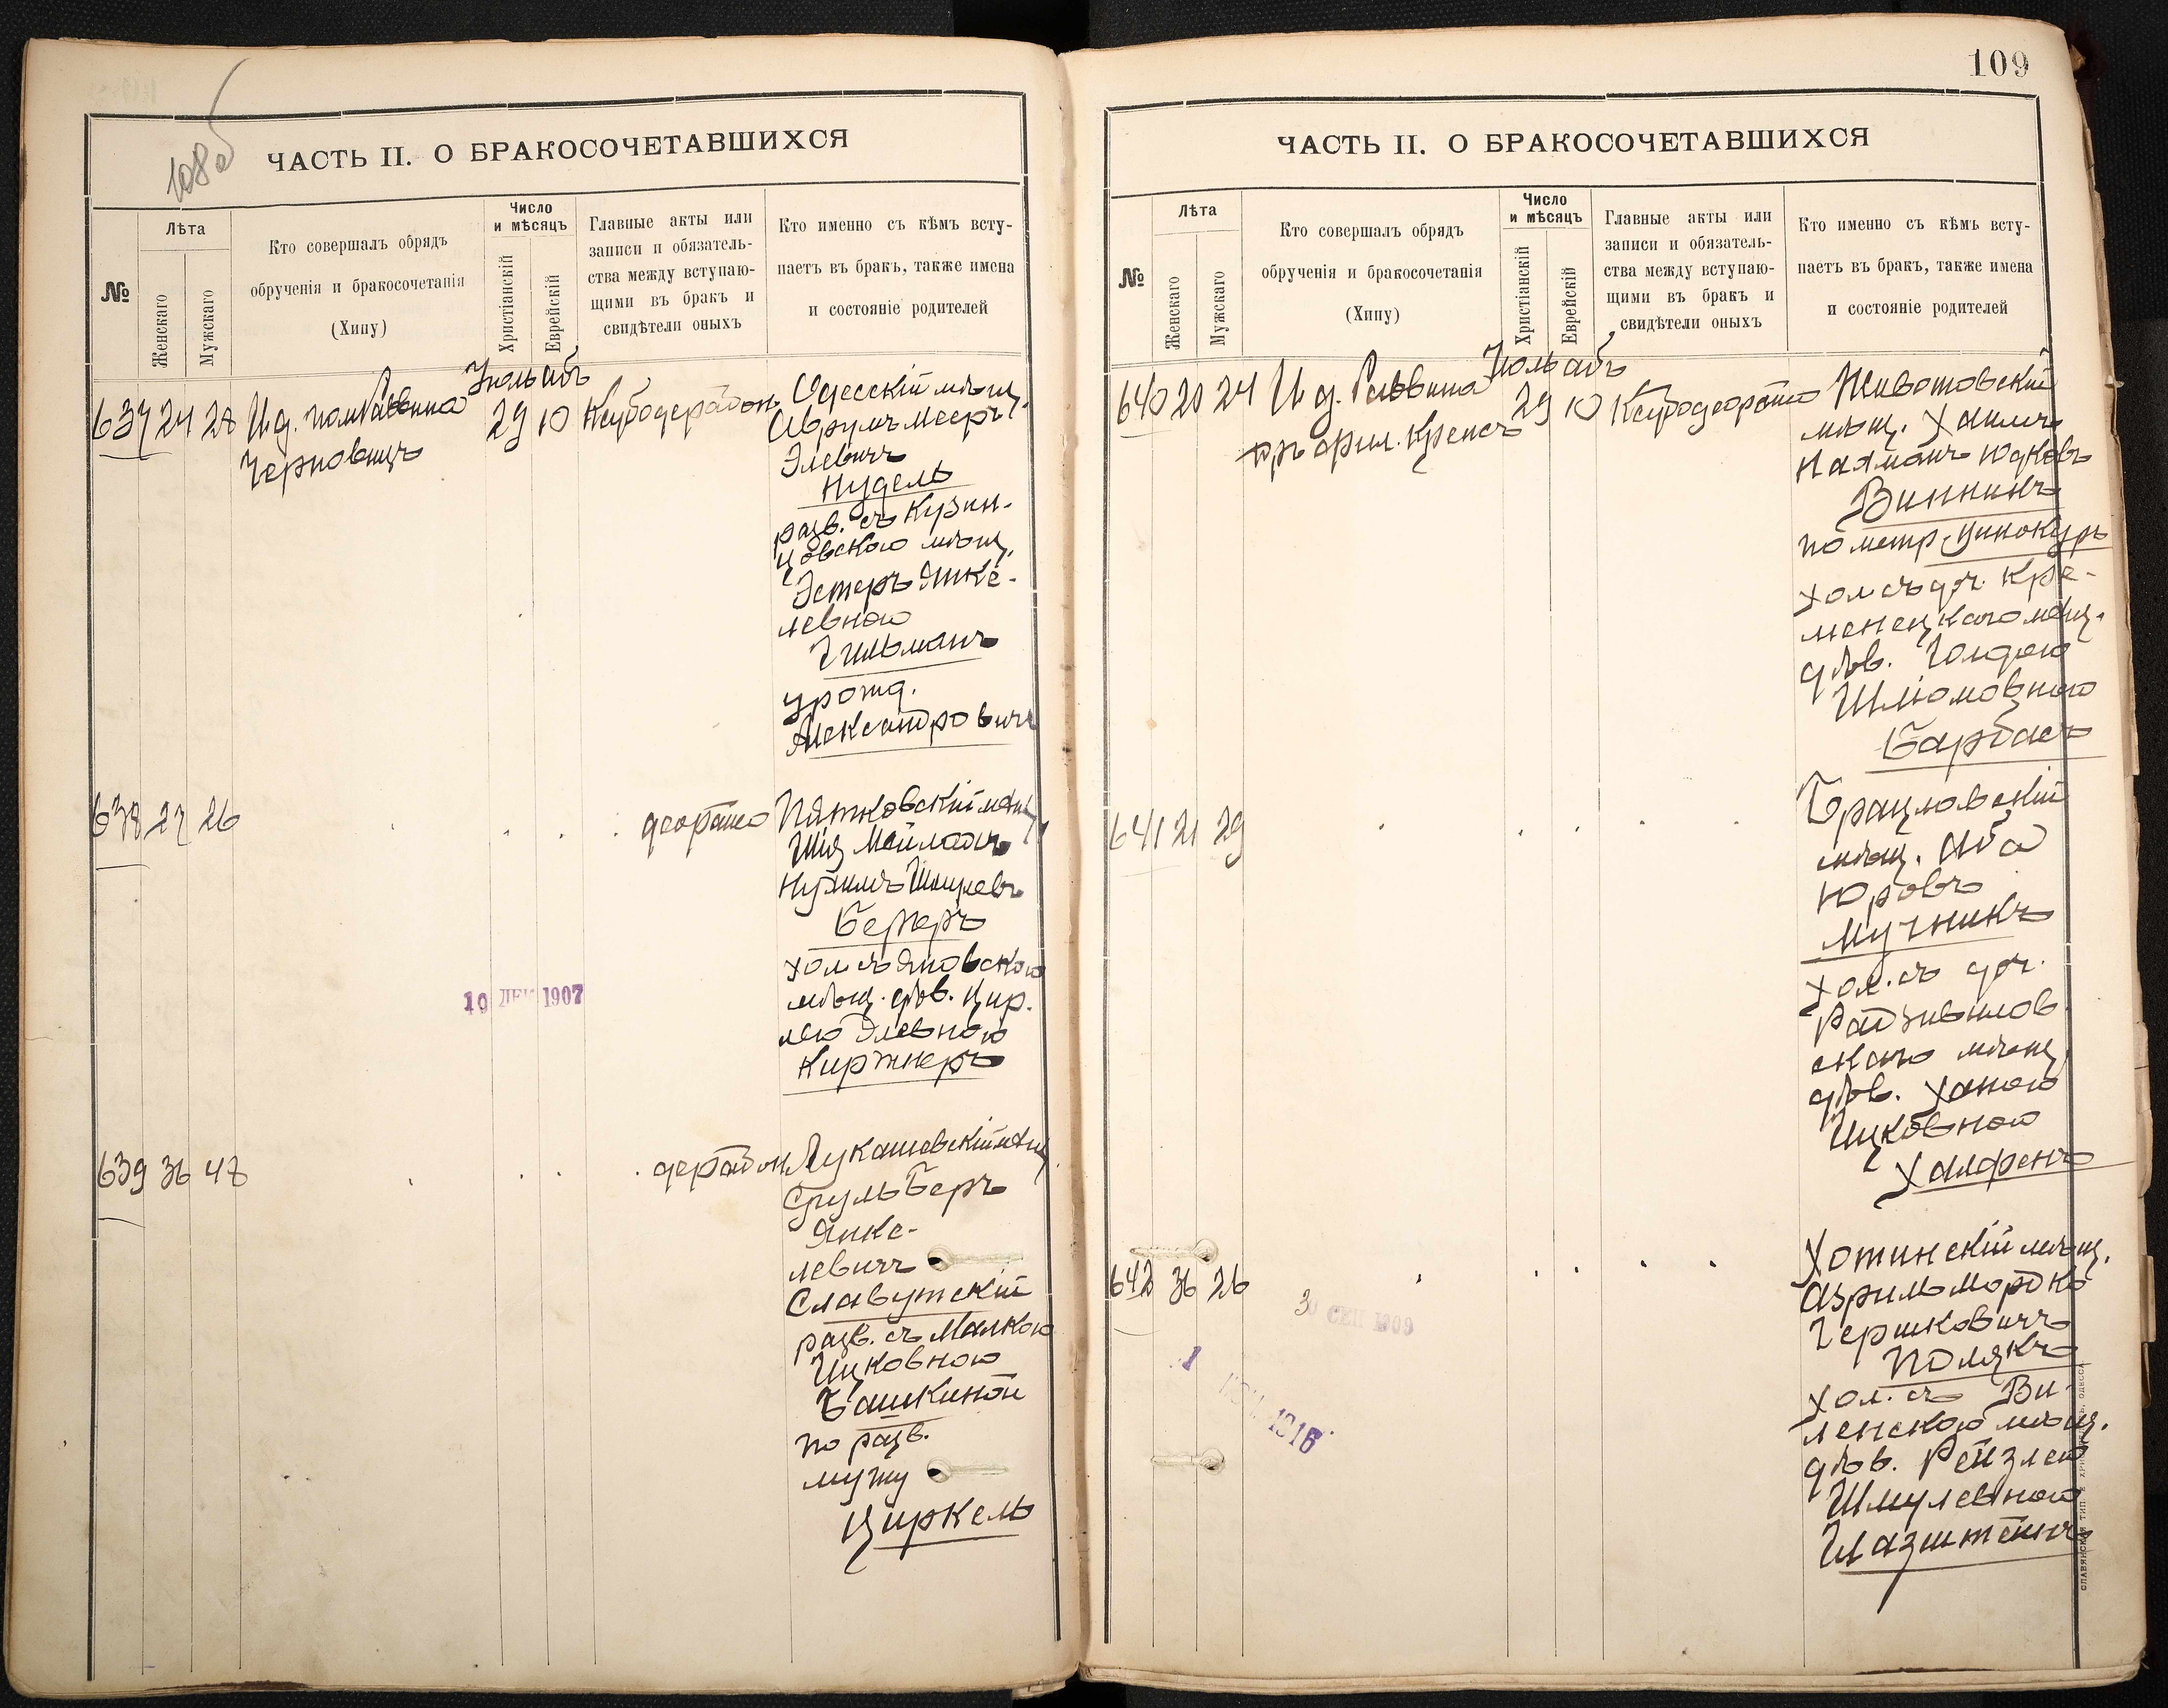 108об
ЧАСТЬ II. О БРАКОСОЧЕТАВШИХСЯ
№
Лѣта
Женскаго
Мужскаго
Кто совершалъ обрядъ
обрученія и бракосочетанія
(Хипу)
Число
и мѣсяцъ
Христіанскій
Еврейскій
Главные акты или
записи и обязатель-
ства между вступаю-
щими въ бракъ и
свидѣтели оныхъ
Кто именно съ кѣмъ всту-
паетъ въ бракъ, также имена
и состояніе родителей
Іюль абъ
637 24 28 И.д. пом Раввина 29 10
Черновицъ
Одесскій мѣщ.
Аврумъ Мееръ
Элевичъ
Нудель
разв. съ Кузин-
цовскою мѣщ.
Эстеръ Янке-
левною
Гильманъ
урожд.
Александровичъ
638 27 26
Пятковскій мѣщ.
Шія Мойлахъ
Нухимъ Шмулевъ
Бергеръ
хол. съ Яновскою
мѣщ. дѣв. Цир-
лею Элевною
Киржнеръ
10 ДЕК 1907
639 36 48
Лукашевскій мѣщ.
Сруль Беръ
Янке-
левичъ
Славутскій
разв. съ Малкою
Ицковною
Башкиной
по разв.
мужу
Циркель
109
ЧАСТЬ II. О БРАКОСОЧЕТАВШИХСЯ
№
Лѣта
Женскаго
Мужскаго
Кто совершалъ обрядъ
обрученія и бракосочетанія
(Хипу)
Число
и мѣсяцъ
Христіанскій
Еврейскій
Главные акты или
записи и обязатель-
ства между вступаю-
щими въ бракъ и
свидѣтели оныхъ
Кто именно съ кѣмъ всту-
паетъ въ бракъ, также имена
и состояніе родителей
Іюль абъ
640 20 24 И.д. Раввина 29 10
Крепсъ
Животовскій
мѣщ. Хаимъ
Нахманъ Юдковъ
Виннинъ
по метр. Винокуръ
хол. съ доч. Кре-
менецкаго мѣщ.
дѣв. Голдою
Шліомовною
Барбасъ
641 21 29
Брацлавскій
мѣщ. Аба
Юровъ
Мучникъ
хол. съ доч.
Радзивилов-
скаго мѣщ.
дѣв. Ханою
Ицковною
Халфенъ
642 36 26
30 СЕН 1909
1
1916
Хотинскій мѣщ.
Азриль Мордко
Гершковичъ
Полякъ
хол. съ Ви-
ленскою мѣщ.
дѣв. Рейзлею
Шмулевною
Глазштейнъ